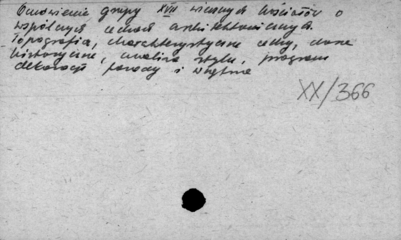 Omówienie grupy XVII wiecznych kościołów o
wspólnych cechach architektonicznych.
Topografia, charakterystyczne cechy, dane
historyczne, analiza stylu, program
dekoracji fasady i wnętrza
XX/366